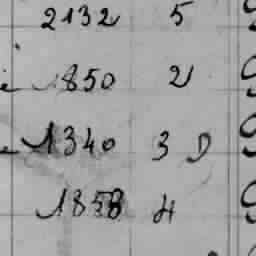 2132 5
1850 2
1340 3 D
1858 4